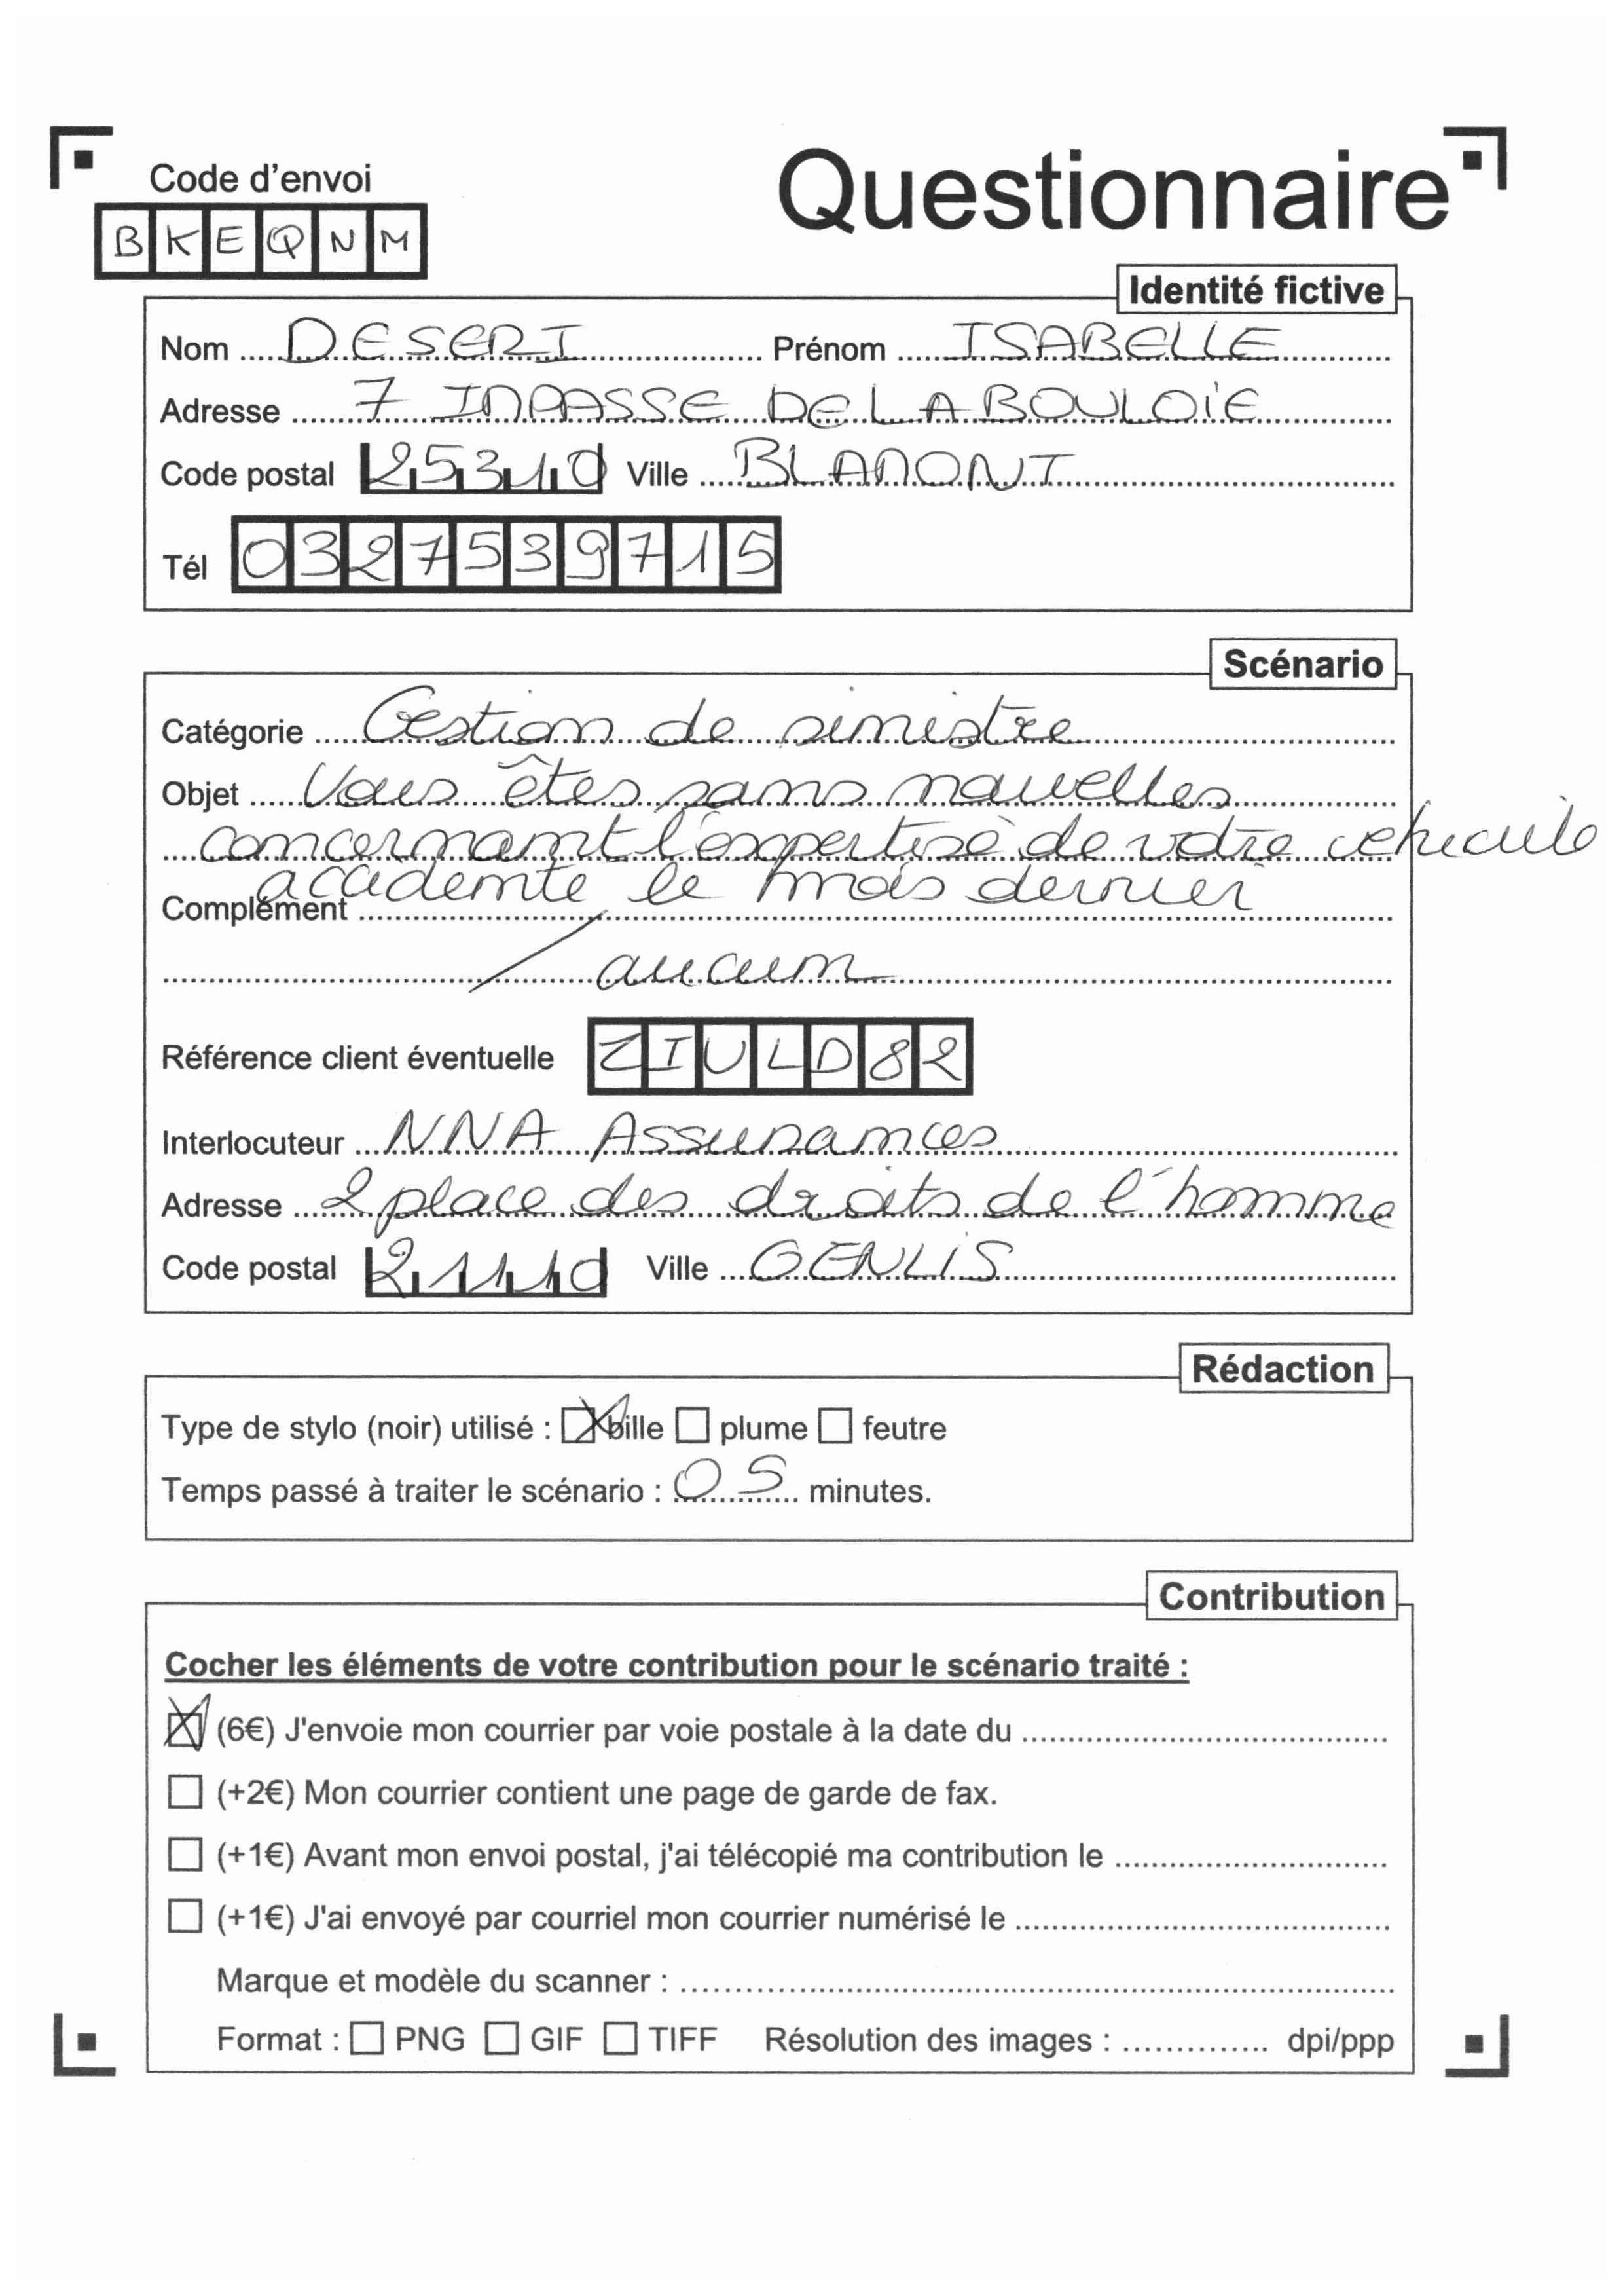 Code d'envoi
Questionnaire
BKEQNM
Identité fictive
Nom DESERT Prénom ISABELLE
Adresse 7 IMPASSE DE LA BOULOIE
Code postal 25310 Ville BLAMONT
Tél 0327539715
Scénario
Catégorie Gestion de sinistre
Objet Vous êtes sans nouvelles
concernant l'expertise de votre vehicule
accidenté le mois dernier
Complément
aucun
Référence client éventuelle ZIULD82
Interlocuteur NNA Assurances
Adresse 2 place des droits de l'homme
Code postal 21110 Ville GENLIS
Rédaction
Type de stylo (noir) utilisé : bille plume feutre
Temps passé à traiter le scénario : 05 minutes.
Contribution
Cocher les éléments de votre contribution pour le scénario traité :
(6€) J'envoie mon courrier par voie postale à la date du
(+2€) Mon courrier contient une page de garde de fax.
(+1€) Avant mon envoi postal, j'ai télécopié ma contribution le
(+1€) J'ai envoyé par courriel mon courrier numérisé le
Marque et modèle du scanner :
Format : PNG GIF TIFF Résolution des images : dpi/ppp